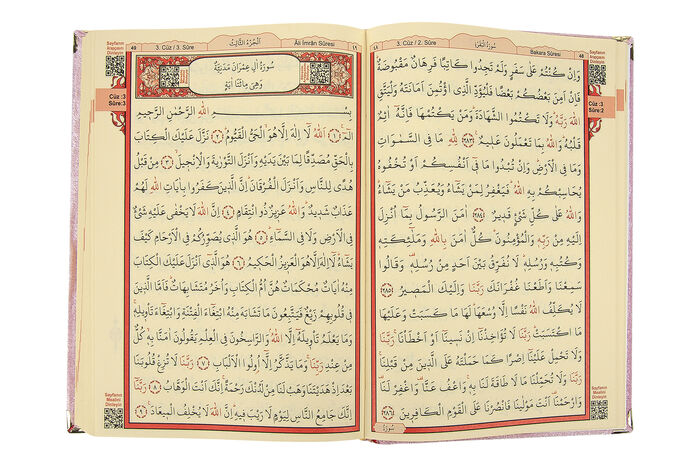 3. Cüz / 2. Sûre
سُورَةُ الْبَقَرَةِ
Bakara Sûresi
48
Sayfanın
Arapçasını
Dinleyin
Cüz :3
Sûre:2
وَاِنْ كُنْتُمْ عَلٰى سَفَرٍ وَلَمْ تَجِدُوا كَاتِبًا فَرِهَانٌ مَقْبُوضَةٌ
فَاِنْ اَمِنَ بَعْضُكُمْ بَعْضًا فَلْيُؤَدِّ الَّذِي اؤْتُمِنَ اَمَانَتَهُ وَلْيَتَّقِ
اللّٰهَ رَبَّهُ وَلَا تَكْتُمُوا الشَّهَادَةَ وَمَنْ يَكْتُمْهَا فَاِنَّهُ اٰثِمٌ
قَلْبُهُ وَاللّٰهُ بِمَا تَعْمَلُونَ عَلِيمٌ ﴿٢٨٣﴾ لِلّٰهِ مَا فِي السَّمٰوَاتِ
وَمَا فِي الْاَرْضِ وَاِنْ تُبْدُوا مَا فِي اَنْفُسِكُمْ اَوْ تُخْفُوهُ
يُحَاسِبْكُمْ بِهِ اللّٰهُ فَيَغْفِرُ لِمَنْ يَشَاءُ وَيُعَذِّبُ مَنْ يَشَاءُ
وَاللّٰهُ عَلٰى كُلِّ شَيْءٍ قَدِيرٌ ﴿٢٨٤﴾ اٰمَنَ الرَّسُولُ بِمَا اُنْزِلَ
اِلَيْهِ مِنْ رَبِّهِ وَالْمُؤْمِنُونَ كُلٌّ اٰمَنَ بِاللّٰهِ وَمَلٰئِكَتِهِ
وَكُتُبِهِ وَرُسُلِهِ لَا نُفَرِّقُ بَيْنَ اَحَدٍ مِنْ رُسُلِهِ وَقَالُوا
سَمِعْنَا وَاَطَعْنَا غُفْرَانَكَ رَبَّنَا وَاِلَيْكَ الْمَصِيرُ ﴿٢٨٥﴾
لَا يُكَلِّفُ اللّٰهُ نَفْسًا اِلَّا وُسْعَهَا لَهَا مَا كَسَبَتْ وَعَلَيْهَا
مَا اكْتَسَبَتْ رَبَّنَا لَا تُؤَاخِذْنَا اِنْ نَسِينَا اَوْ اَخْطَأْنَا رَبَّنَا
وَلَا تَحْمِلْ عَلَيْنَا اِصْرًا كَمَا حَمَلْتَهُ عَلَى الَّذِينَ مِنْ قَبْلِنَا
رَبَّنَا وَلَا تُحَمِّلْنَا مَا لَا طَاقَةَ لَنَا بِهِ وَاعْفُ عَنَّا وَاغْفِرْ لَنَا
وَارْحَمْنَا اَنْتَ مَوْلٰينَا فَانْصُرْنَا عَلَى الْقَوْمِ الْكَافِرِينَ ﴿٢٨٦﴾
سُورَةُ
Sayfanın
Mealini
Dinleyin
49
3. Cüz / 3. Sûre
اَلْجُزْءُ الثَّالِثُ
Âli İmrân Sûresi
Sayfanın
Arapçasını
Dinleyin
Cüz :3
Sûre:3
سُورَةُ اٰلِ عِمْرَانَ مَدَنِيَّةٌ
وَهِيَ مِائَتَا اٰيَةٍ
بِسْمِ اللّٰهِ الرَّحْمٰنِ الرَّحِيمِ
الٓمٓ ﴿١﴾ اَللّٰهُ لَا اِلٰهَ اِلَّا هُوَ الْحَيُّ الْقَيُّومُ ﴿٢﴾ نَزَّلَ عَلَيْكَ الْكِتَابَ
بِالْحَقِّ مُصَدِّقًا لِمَا بَيْنَ يَدَيْهِ وَاَنْزَلَ التَّوْرٰيةَ وَالْاِنْجِيلَ ﴿٣﴾ مِنْ قَبْلُ
هُدًى لِلنَّاسِ وَاَنْزَلَ الْفُرْقَانَ اِنَّ الَّذِينَ كَفَرُوا بِاٰيَاتِ اللّٰهِ لَهُمْ
عَذَابٌ شَدِيدٌ وَاللّٰهُ عَزِيزٌ ذُو انْتِقَامٍ ﴿٤﴾ اِنَّ اللّٰهَ لَا يَخْفٰى عَلَيْهِ شَيْءٌ
فِي الْاَرْضِ وَلَا فِي السَّمَاءِ ﴿٥﴾ هُوَ الَّذِي يُصَوِّرُكُمْ فِي الْاَرْحَامِ كَيْفَ
يَشَاءُ لَا اِلٰهَ اِلَّا هُوَ الْعَزِيزُ الْحَكِيمُ ﴿٦﴾ هُوَ الَّذِي اَنْزَلَ عَلَيْكَ الْكِتَابَ
مِنْهُ اٰيَاتٌ مُحْكَمَاتٌ هُنَّ اُمُّ الْكِتَابِ وَاُخَرُ مُتَشَابِهَاتٌ فَاَمَّا الَّذِينَ
فِي قُلُوبِهِمْ زَيْغٌ فَيَتَّبِعُونَ مَا تَشَابَهَ مِنْهُ ابْتِغَاءَ الْفِتْنَةِ وَابْتِغَاءَ تَأْوِيلِهِ
وَمَا يَعْلَمُ تَأْوِيلَهُ اِلَّا اللّٰهُ وَالرَّاسِخُونَ فِي الْعِلْمِ يَقُولُونَ اٰمَنَّا بِهِ كُلٌّ
مِنْ عِنْدِ رَبِّنَا وَمَا يَذَّكَّرُ اِلَّا اُولُوا الْاَلْبَابِ ﴿٧﴾ رَبَّنَا لَا تُزِغْ قُلُوبَنَا
بَعْدَ اِذْ هَدَيْتَنَا وَهَبْ لَنَا مِنْ لَدُنْكَ رَحْمَةً اِنَّكَ اَنْتَ الْوَهَّابُ ﴿٨﴾ رَبَّنَا
اِنَّكَ جَامِعُ النَّاسِ لِيَوْمٍ لَا رَيْبَ فِيهِ اِنَّ اللّٰهَ لَا يُخْلِفُ الْمِيعَادَ ﴿٩﴾
Sayfanın
Mealini
Dinleyin